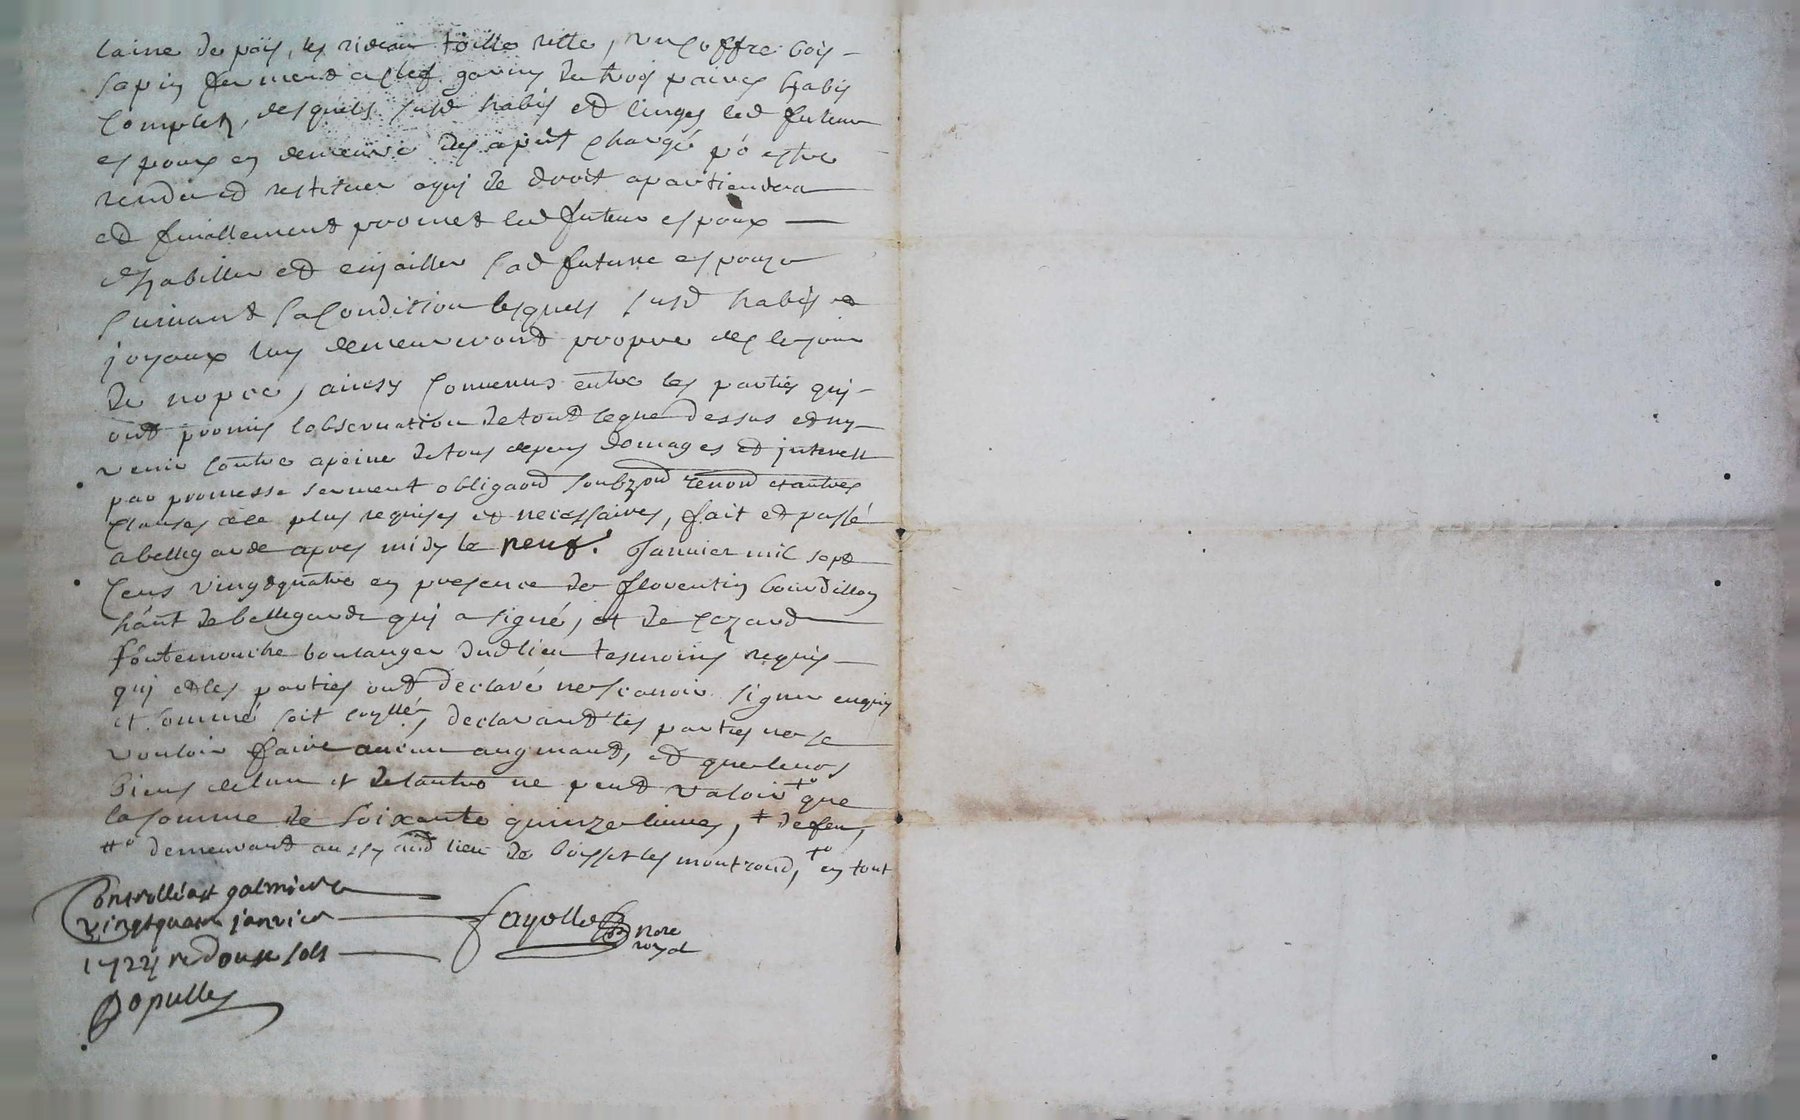 laine de païs, les rideau toille rette, un coffre bois
sapin fermant a clef garny de trois paires habis
complets, desquels susd habis et linges led futeur
espoux en demeure des apnt chargé pō estre
rendu et restituer a qui de droit apartiendra
et finallement promet led futeur espoux
dhabiller et enjailler lad future espouze
suivant sa condition lesquels susd habis et
joyaux luy demeureront propre des le jour
de nopce, ainsy convenus entre les parties qui
ont promis lobservation de tout ce que dessus et ny
venir contre a peine de tous depens domages et interest
par promesse serment obligaōn soubzōn renōn et autres
clauses a ce plus requises et necessaires, fait et passé
a bellegarde apres midy le neuf. Janvier mil sept
cens vingt quatre en presence de florentin bourdillon
hānt de bellegarde qui a signé, et de
boulanger dud lieu tesmoins requis
qui et les parties ont declaré ne scavoir signer enquis
et sommé soit , declarant les parties ne se
vouloir faire aucun augmant, et que leurs
biens de lun et de lautre ne peut valoir +o que
la somme de soixante quinze livres, +
#o demeurant aussy aud lieu de boisset les montrond, +o en tout
Controllé a st galmier le
vingt quatre janvier
1724 r douze sols
fayolle nore
royal
populle